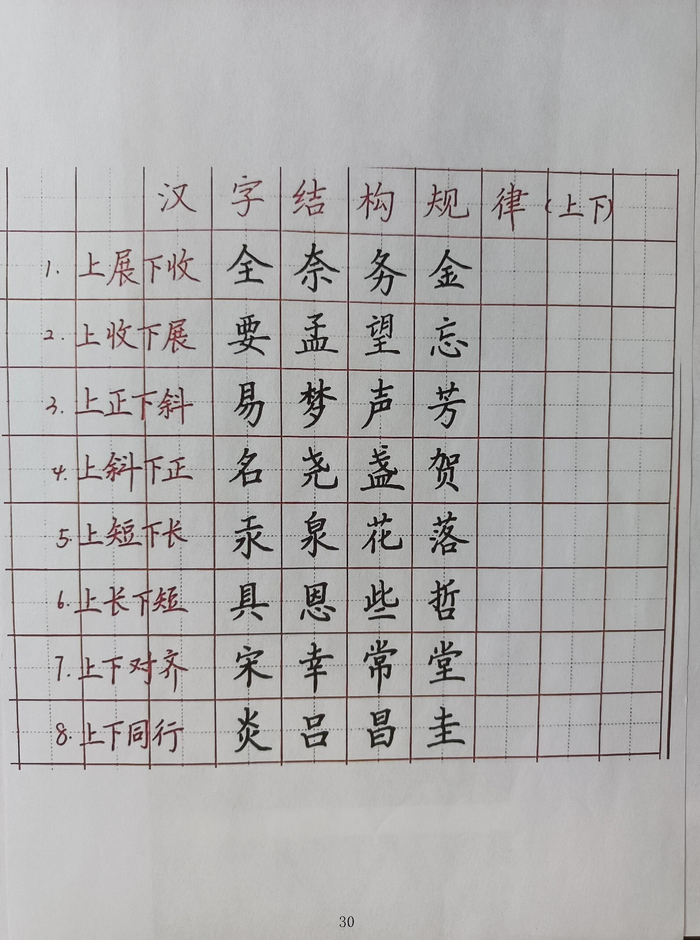 汉字结构规律(上下)
1. 上展下收 全 奈 务 金
2. 上收下展 要 孟 望 忘
3. 上正下斜 易 梦 声 芳
4. 上斜下正 名 尧 盏 贺
5. 上短下长 汞 泉 花 落
6. 上长下短 具 恩 些 哲
7. 上下对齐 宋 幸 常 堂
8. 上下同行 炎 吕 昌 圭
30